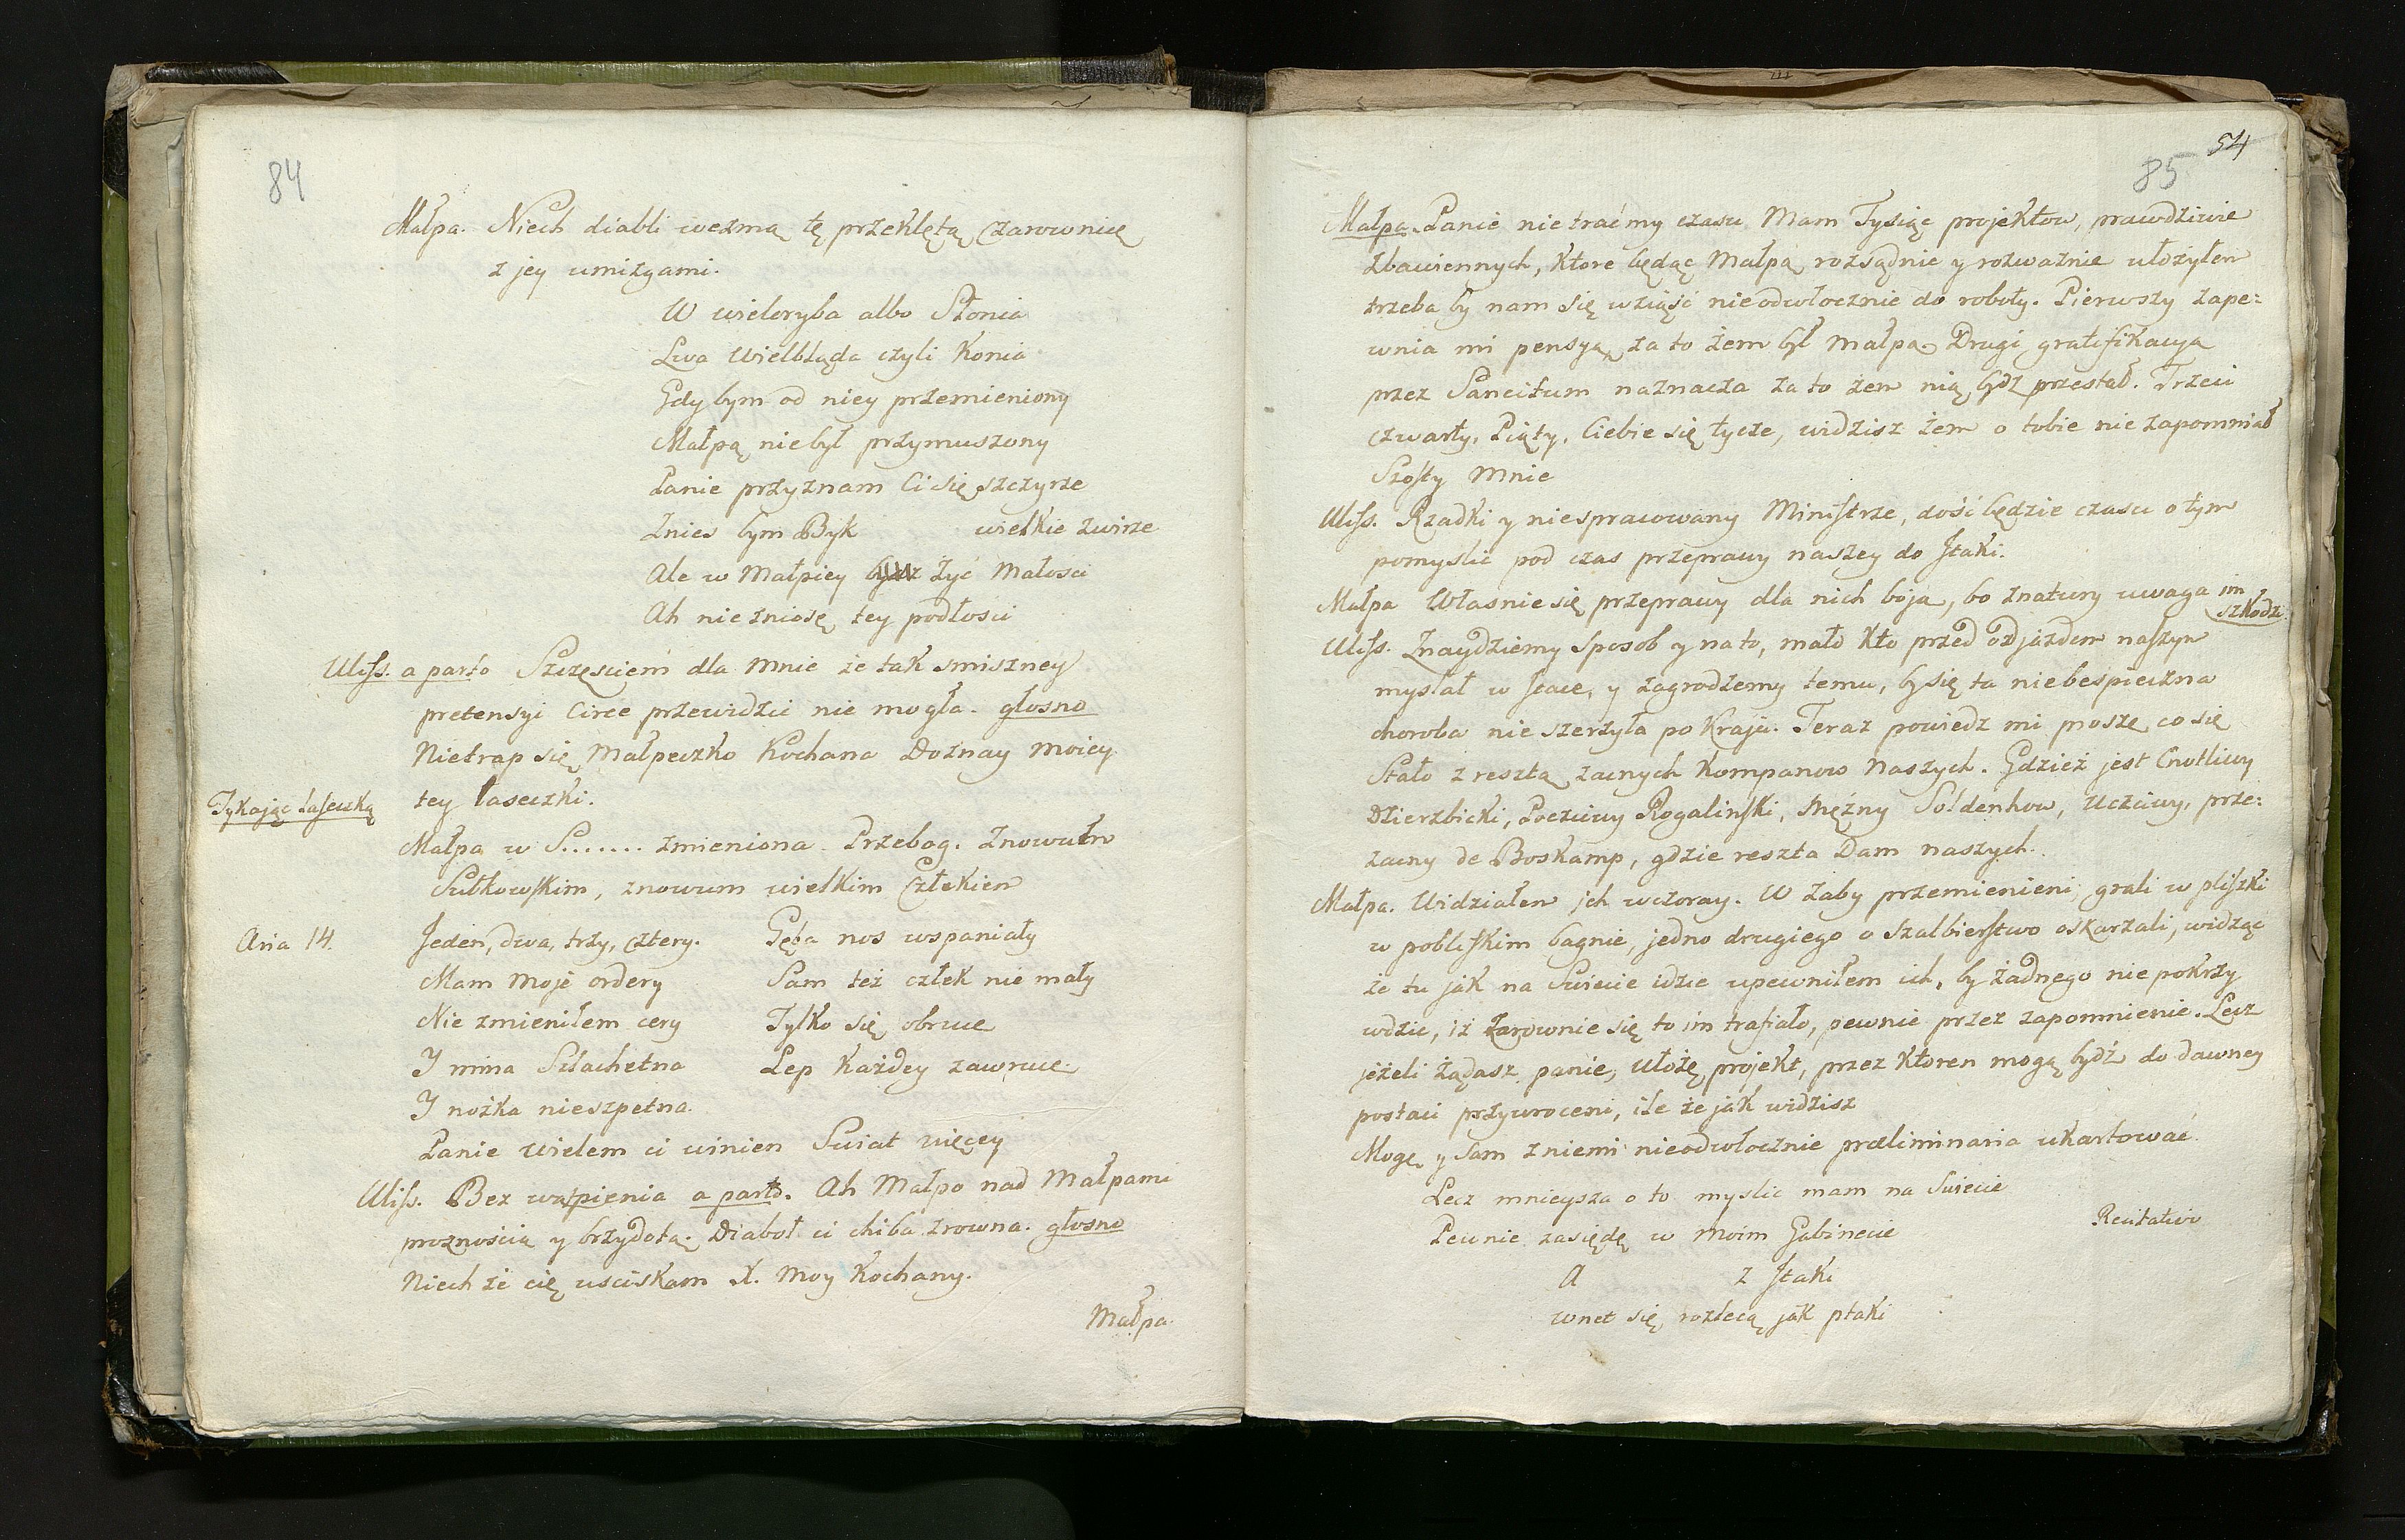 84
Małpa. Niech diabli wezmą tę przeklętą Czarownicę
z jey umizgami.
W wieloryba albo Słonia
Lwa Wielbłąda czyli Konia
Gdy bym od niey przemieniony
Małpą niebył przymuszony
Panie przyznam Ci się szczyrze
Znies bym Byk wielkie zwirze
Ale w Małpiey żyć Małosci
Ah nie zniosę tey podłosci
Uliss. a parto Szczęsciem dla mnie że tak smiszney
pretensyi Circe przewidzić nie mogła. głosno
Nietrap się Małpeczko Kochana Doznay moiey
Tykając laseczką tey laseczki.
Małpa w S....... zmieniona. Przebog. Znowum
Sułkowskim, znowum wielkim Człekiem
Aria 14. Jeden, dwa, trzy, cztery. Gęba nos wspaniały
Mam moje ordery Sam też człek nie mały
Nie zmieniłem cery Tylko się obruce
I mina Szlachetna Łep Każdey zawruce.
I nożka nieszpetna.
Panie wielem ci winien Swiat więcey
Uliss. Bez wąpienia a parto. Ah Małpo nad Małpami
proznoscią y brzydotą. Diaboł ci chiba zrowna. głosno
Niech że cię usciskam X. Moy Kochany.
Małpa
54
85
Małpa. Panie nie traćmy czasu Mam Tysiąc projektow, prawdziwie
zbawiennych, Ktore będąc Małpą rozsądnie y rozważnie ułożyłem
trzeba by nam się wziąść nieodwłocznie do roboty. Pierwszy zape:
wnia mi pensyą za to żem był małpą. Drugi gratifikacyą
przez Sancitum naznacza za to żem nią bydz przestał. Trzeci
czwarty, Piąty, Ciebie się tycze, widzisz żem o tobie nie zapomniał
Szosty Mnie
Uliss. Rzadki y niespracowany Ministrze, dość będzie czasu o tym
pomyslić pod czas przeprawy naszey do Jtaki.
Małpa Własnie się przeprawy dla nich boja, bo z natury uwaga im
szkodzi.
Uliss. Znaydziemy Sposob y na to, mało Kto przed odjazdem naszym
myslał w Jtace, y zagrodzemy temu, by się ta niebespieczna
choroba nie szerzyła po Kraju. Teraz powiedz mi proszę co się
Stało z resztą zacnych Kompanow Naszych. Gdzież jest Cnotliwy
Dzierzbicki, Poczciwy Rogalinski, Mężny Soldenhow, Uczciwy, prze:
zacny de Boskamp, gdzie reszta Dam naszych.
Małpa. Widziałem jch wczoray. W żaby przemienieni, grali w pliszki
w pobliskim bagnie, jedno drugiego o szalbierstwo oskarzali, widząc
że tu jak na Swiecie idzie upewniłem ich, by żadnego nie pokrzy
wdzić, iż zarownie się to im trafiało, pewnie przez zapomnienie. Lecz
jeżeli żądasz panie, ułożę projekt, przez Ktoren mogą bydź do dawney
postaci przywroceni, ile że jak widzisz
Mogę y Sam z niemi nieodwłocznie præliminaria ukartować.
Lecz mnieysza o to myslić mam na Swiecie
Recitativo
Pewnie zasiędę w moim Gabinecie
A z Jtaki
wnet się rozlecą jak ptaki